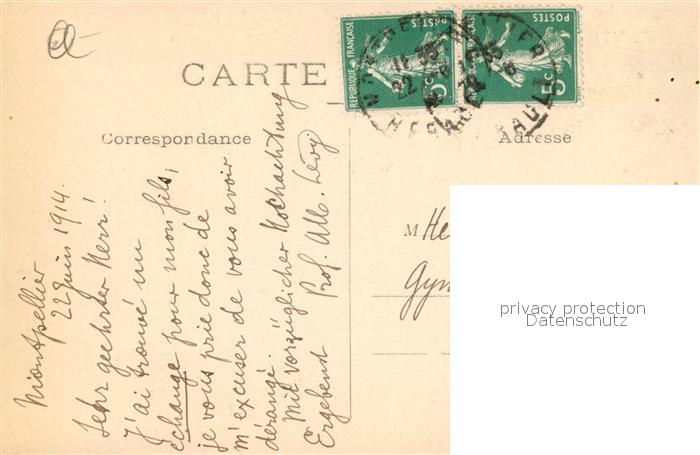 CARTE
Correspondance
Adresse
REPUBLIQUE FRANÇAISE
POSTES
5c
REPUBLIQUE FRANÇAISE
POSTES
5c
Montpellier
22 juin 1914.
Sehr geehrter Herr!
J'ai trouvé un
échange pour mon fils,
je vous prie donc de
m'excuser de vous avoir
dérangé.
Mit vorzüglicher Hochachtung
Ergebenst Prof. Alb. Lévy
M He
Gym
privacy protection
Datenschutz